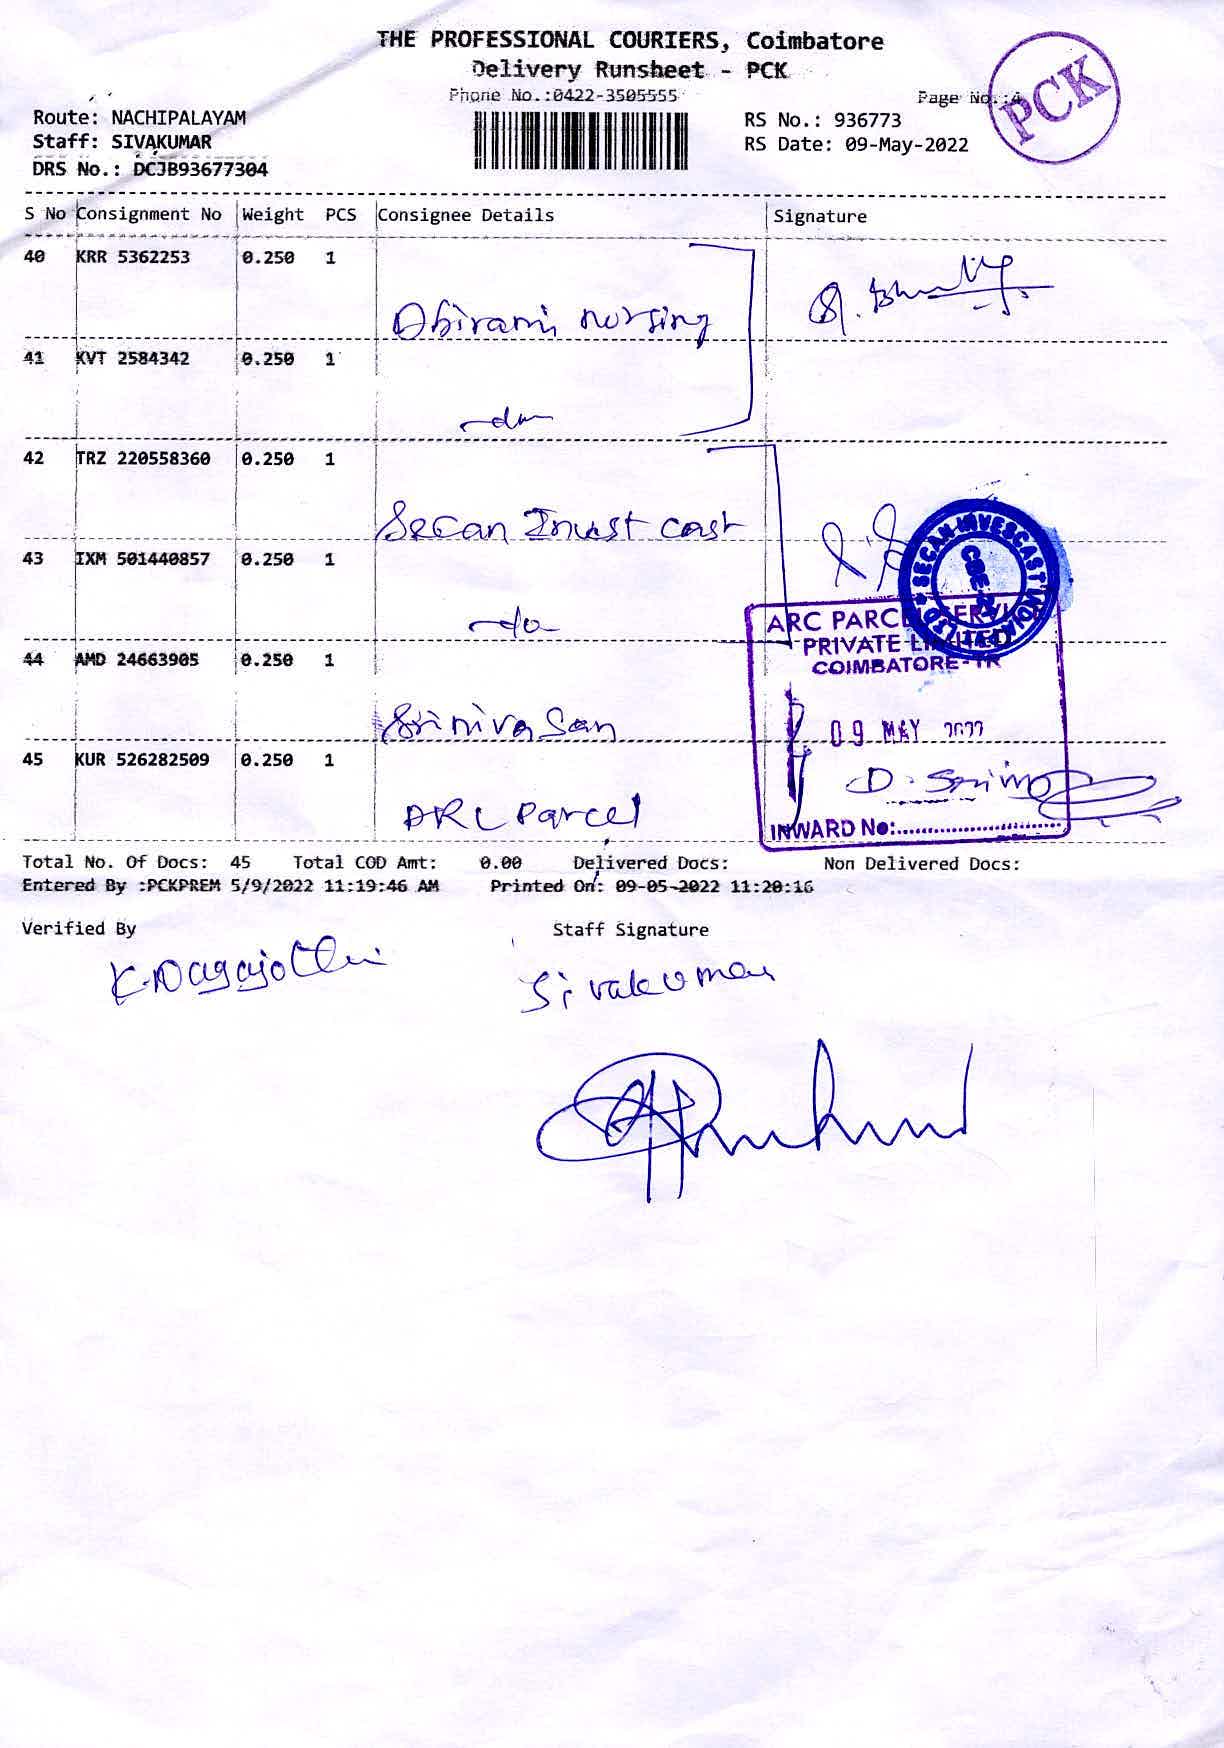 THE PROFESSIONAL COURIERS, Coimbatore
Delivery Runsheet - PCK
Phone No.:0422-3505555
Page No.:4
PCK
Route: NACHIPALAYAM
RS No.: 936773
Staff: SIVAKUMAR
RS Date: 09-May-2022
DRS No.: DCJB93677304
S No Consignment No Weight PCS Consignee Details Signature
40 KRR 5362253 0.250 1
Abirami nursing
41 KVT 2584342 0.250 1
-do-
42 TRZ 220558360 0.250 1
Secan Invest cast
43 IXM 501440857 0.250 1
-do-
SECAN INVESCAST INDIA LTD
ARC PARCEL SERVI
PRIVATE LIMITED
COIMBATORE-TR
44 AMD 24663905 0.250 1
Srinivasan
09 MAY 2022
45 KUR 526282509 0.250 1
ARC Parcel
INWARD No:
Total No. Of Docs: 45 Total COD Amt: 0.00 Delivered Docs: Non Delivered Docs:
Entered By :PCKPREM 5/9/2022 11:19:46 AM Printed On: 09-05-2022 11:20:16
Verified By Staff Signature
Sivakumar